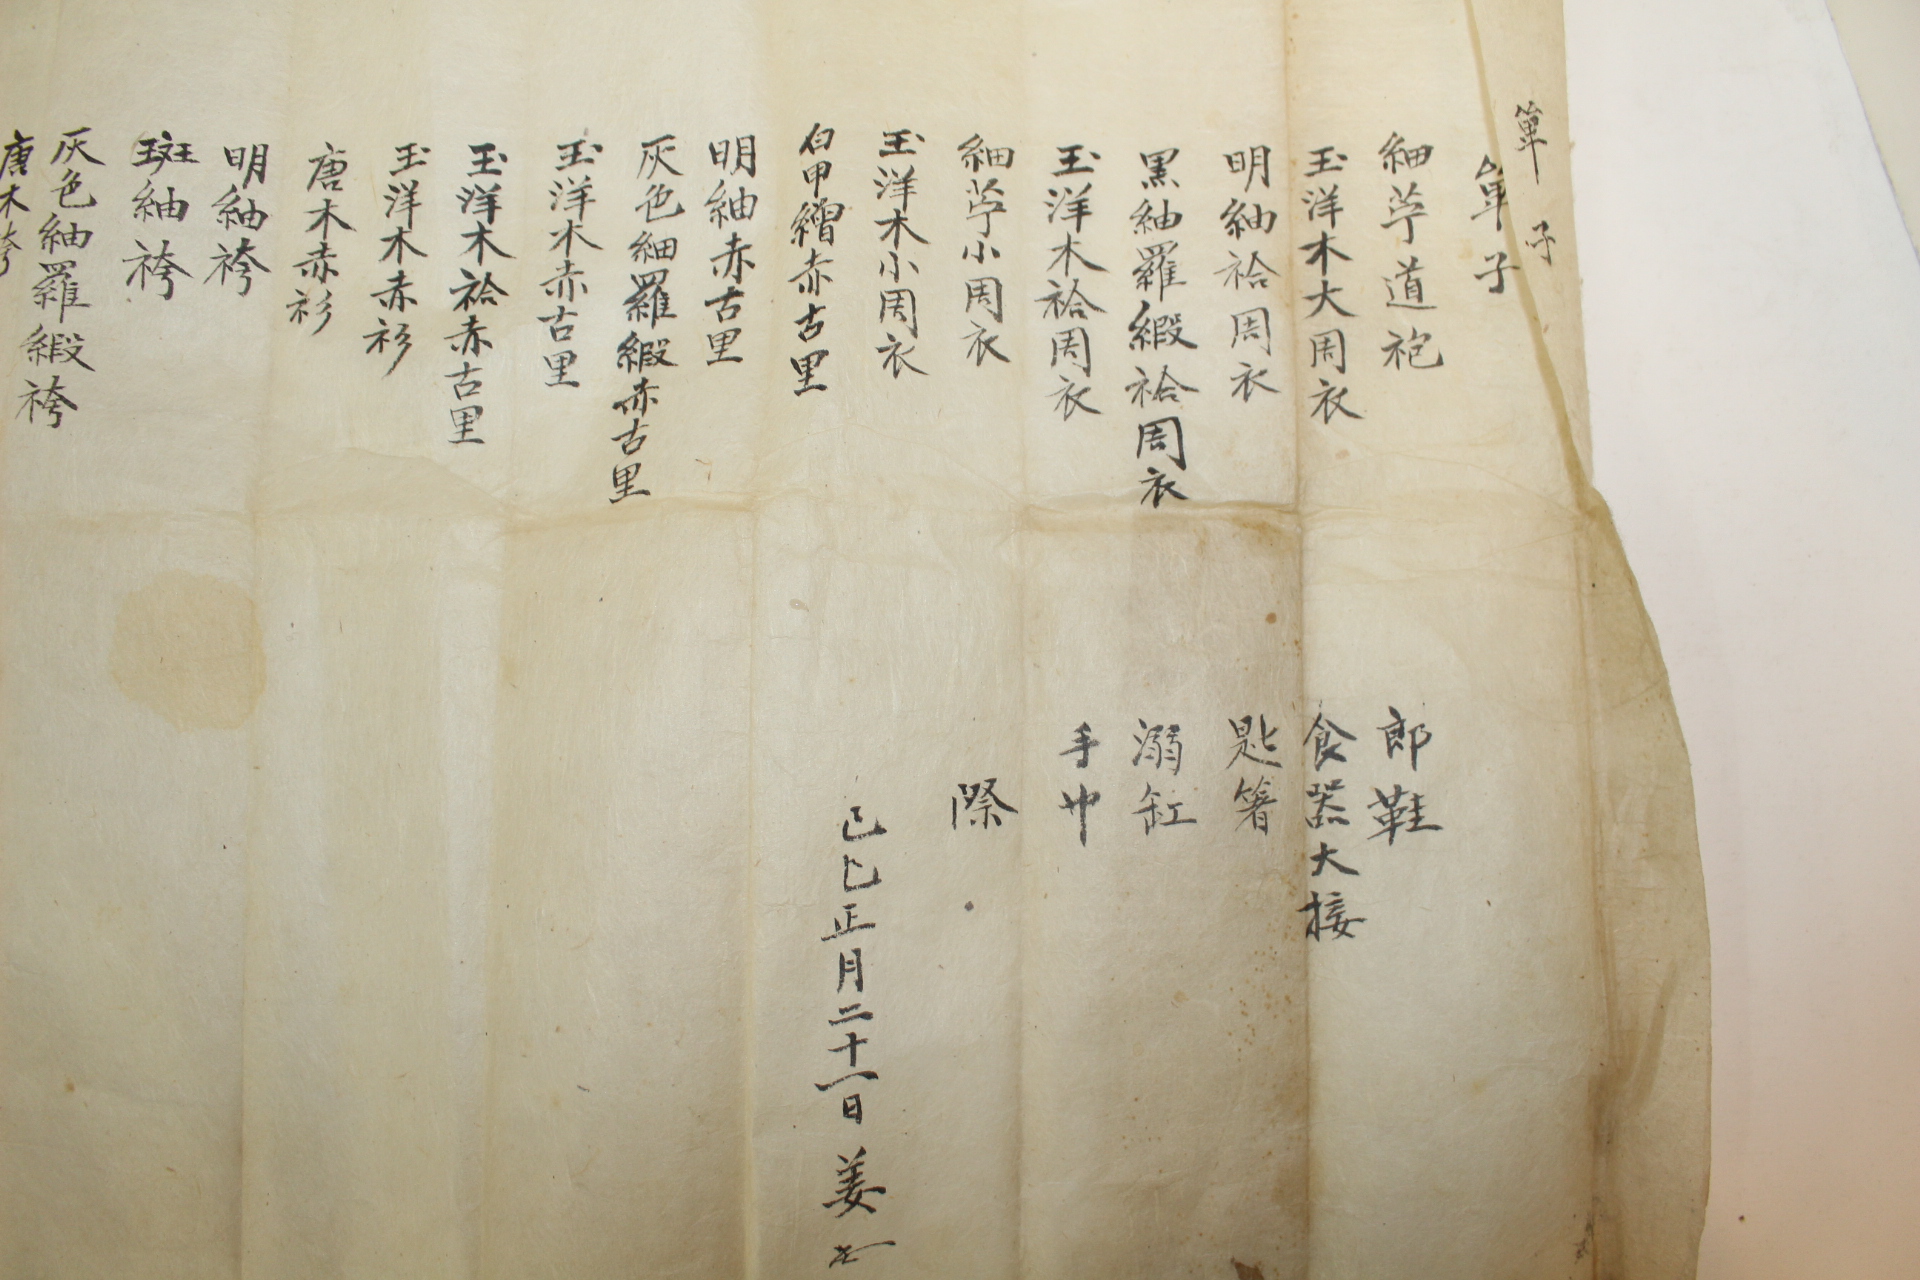 單子
單子
細苧道袍
玉洋木大周衣
明紬袷周衣
黑紬羅緞袷周衣
玉洋木袷周衣
細苧小周衣
玉洋木小周衣
白甲繒赤古里
明紬赤古里
灰色細羅緞赤古里
玉洋木赤古里
玉洋木袷赤古里
玉洋木赤衫
唐木赤衫
明紬袴
斑紬袴
灰色紬羅緞袴
唐木袴
郎鞋
食器大接
匙箸
溺缸
手巾
際
己巳正月二十一日 姜